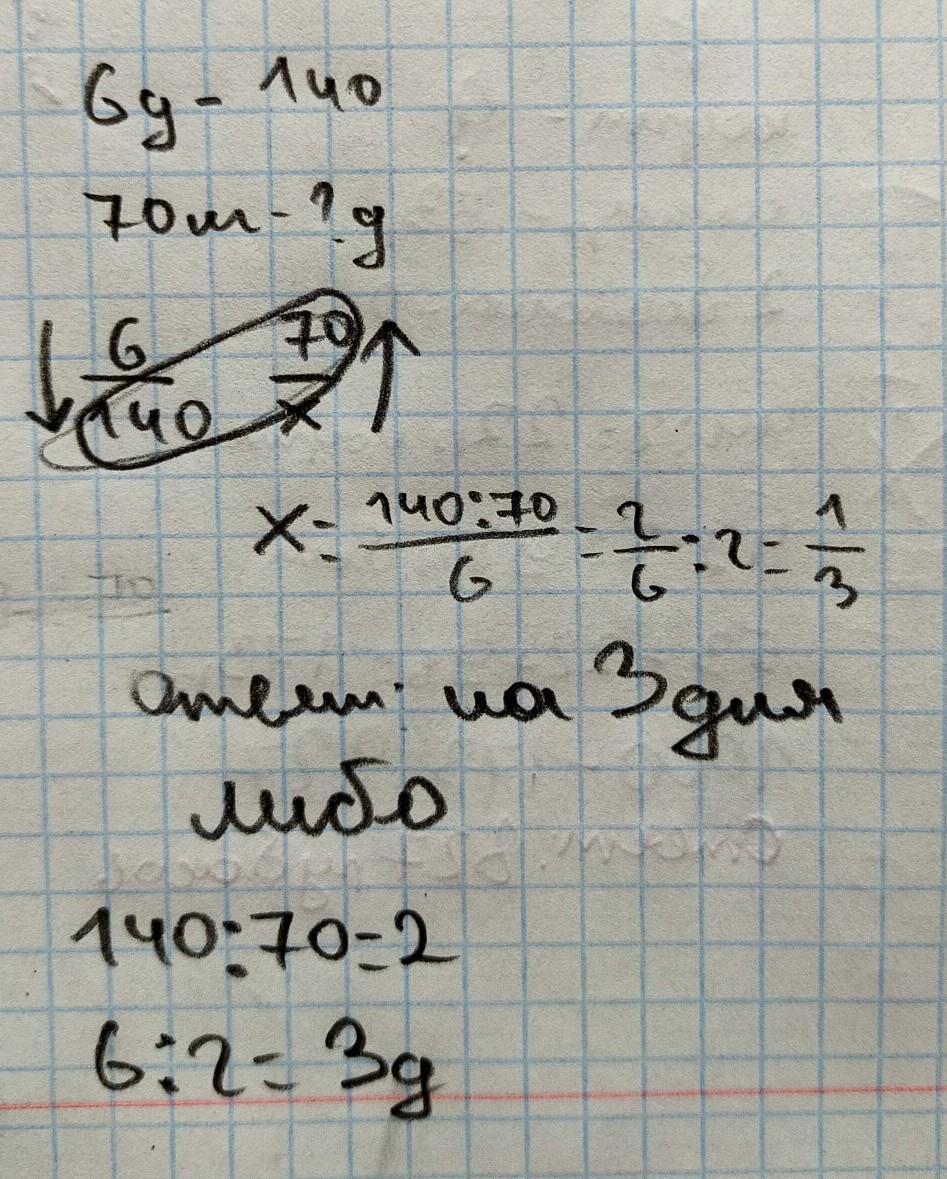 6д - 140
70 ш - ? д
6/140 70/x
x = 140:70/6 = 2/6 : 2 = 1/3
ответ: на 3 дня
либо
140:70=2
6:2= 3д